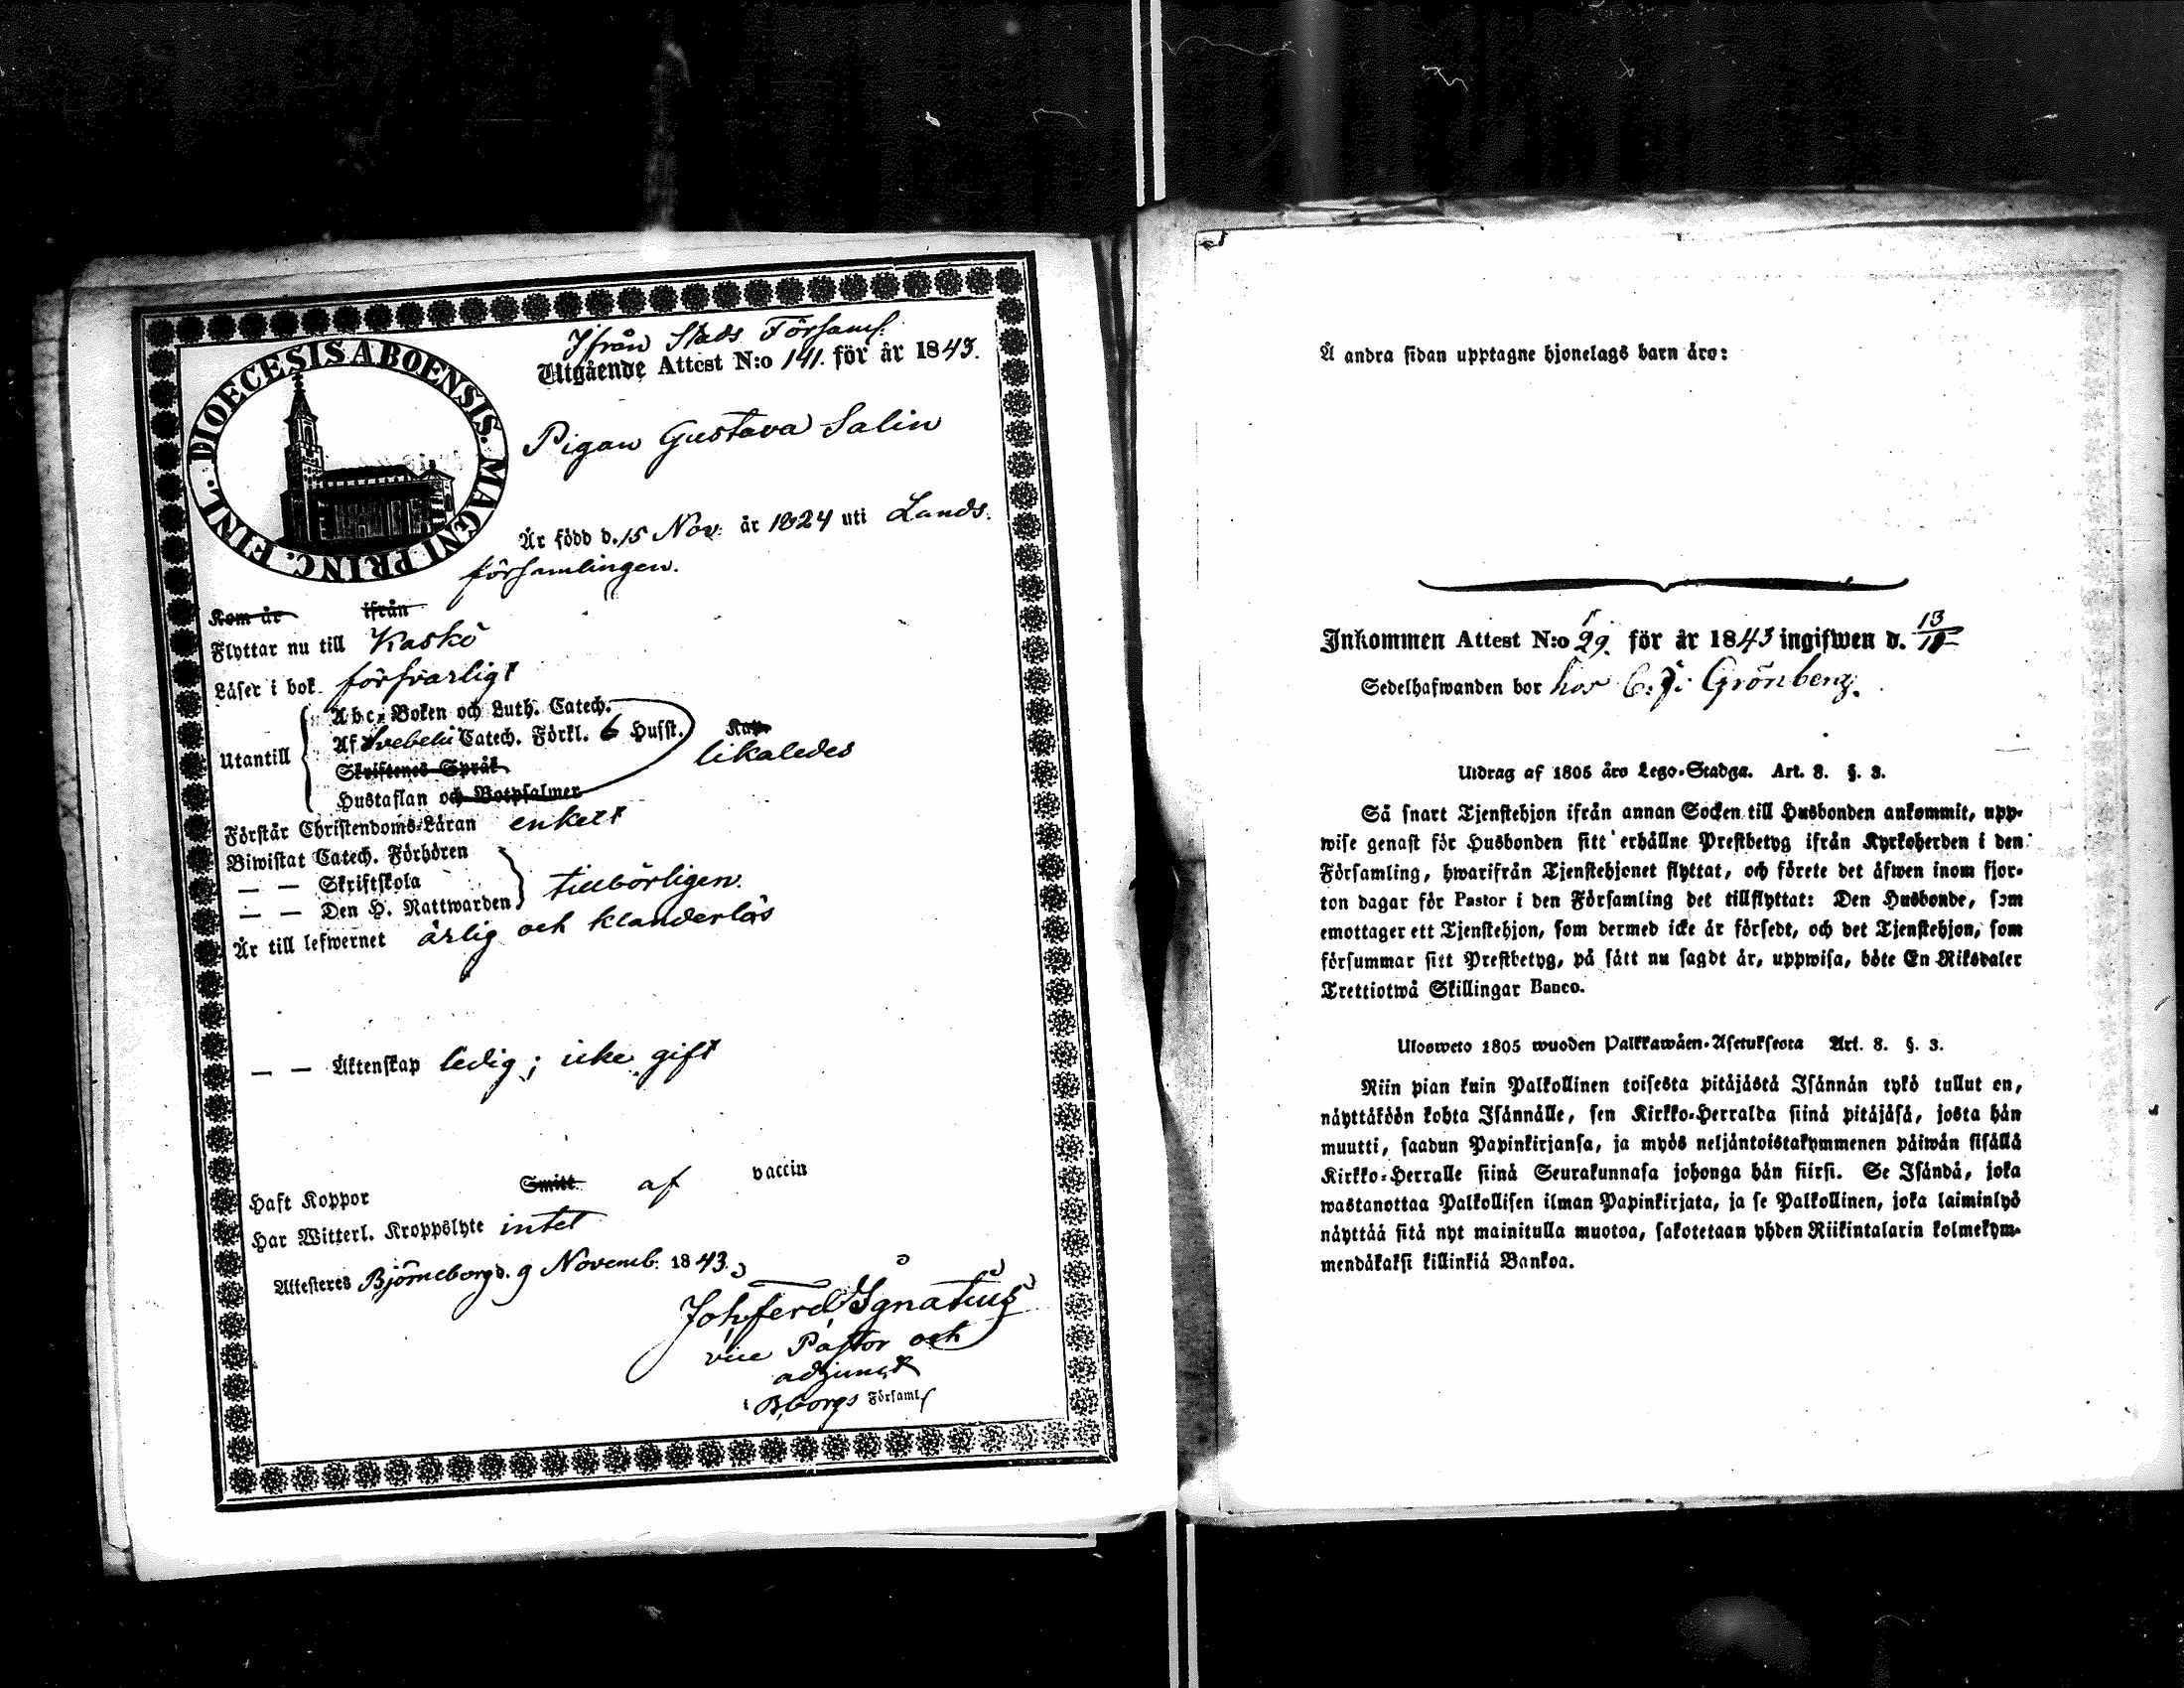 DIOECESIS ABOENSIS. MAGNI PRINC. FINL.
Ifrån Stads Församl.
Utgående Attest N:o 141. för år 1843.
Pigan Gustava Salin
Är född d. 15 Nov. år 1824 uti Lands.
församlingen.
Kom år ifrån
Flyttar nu till Kaskö
Läser i bok försvarligt
Utantill
Abc-Boken och Luth. Catech.
Af Svebelii Catech. Förkl. 6 Husst.
likaledes
Skriftenes Språk
Hustaflan och Botpsalmer
Förstår Christendoms-Läran enkelt
Biwistat Catech. Förhören
— — Skriftskola
tillbörligen.
— — Den H. Nattwarden
Är till lefwernet ärlig och klanderlös
— — Äktenskap ledig; icke gift
Haft Koppor Smitt af vaccin
Har Witterl. Kroppslyte intet
Attesteres Björneborg d. 9 Novemb. 1843.
Joh. Ferd. Ignatius
vice Pastor och
adjunct
i B,borgs Församl.
Å andra sidan upptagne hjonelags barn äro:
Inkommen Attest N:o 29. för år 1843 ingifwen d. 13/11
Sedelhafwanden bor hos C. J. Grönberg.
Utdrag af 1805 års Lego-Stadga. Art. 8. §. 3.
Så snart Tjenstehjon ifrån annan Socken till Husbonden ankommit, upp-
wise genast för Husbonden sitt erhållne Prestbetyg ifrån Kyrkoherden i den
Församling, hwarifrån Tjenstehjonet flyttat, och förete det äfwen inom fjor-
ton dagar för Pastor i den Församling det tillflyttat: Den Husbonde, som
emottager ett Tjenstehjon, som dermed icke är försedt, och det Tjenstehjon, som
försummar sitt Prestbetyg, på sätt nu sagdt är, uppwisa, böte En Riksdaler
Trettiotwå Skillingar Banco.
Ulosweto 1805 wuoden Palkkawäen-Asetuksesta Art. 8. §. 3.
Niin pian kuin Palkollinen toisesta pitäjästä Isännän tykö tullut on,
näyttäköön kohta Isännälle, sen Kirkko-Herralda siinä pitäjäsä, josta hän
muutti, saadun Papinkirjansa, ja myös neljäntoistakymmenen päiwän sisällä
Kirkko-Herralle siinä Seurakunnasa johonga hän siirsi. Se Isändä, joka
wastanottaa Palkollisen ilman Papinkirjata, ja se Palkollinen, joka laiminlyö
näyttää sitä nyt mainitulla muotoa, sakotetaan yhden Riikintalarin kolmekym-
mendäkaksi killinkiä Bankoa.